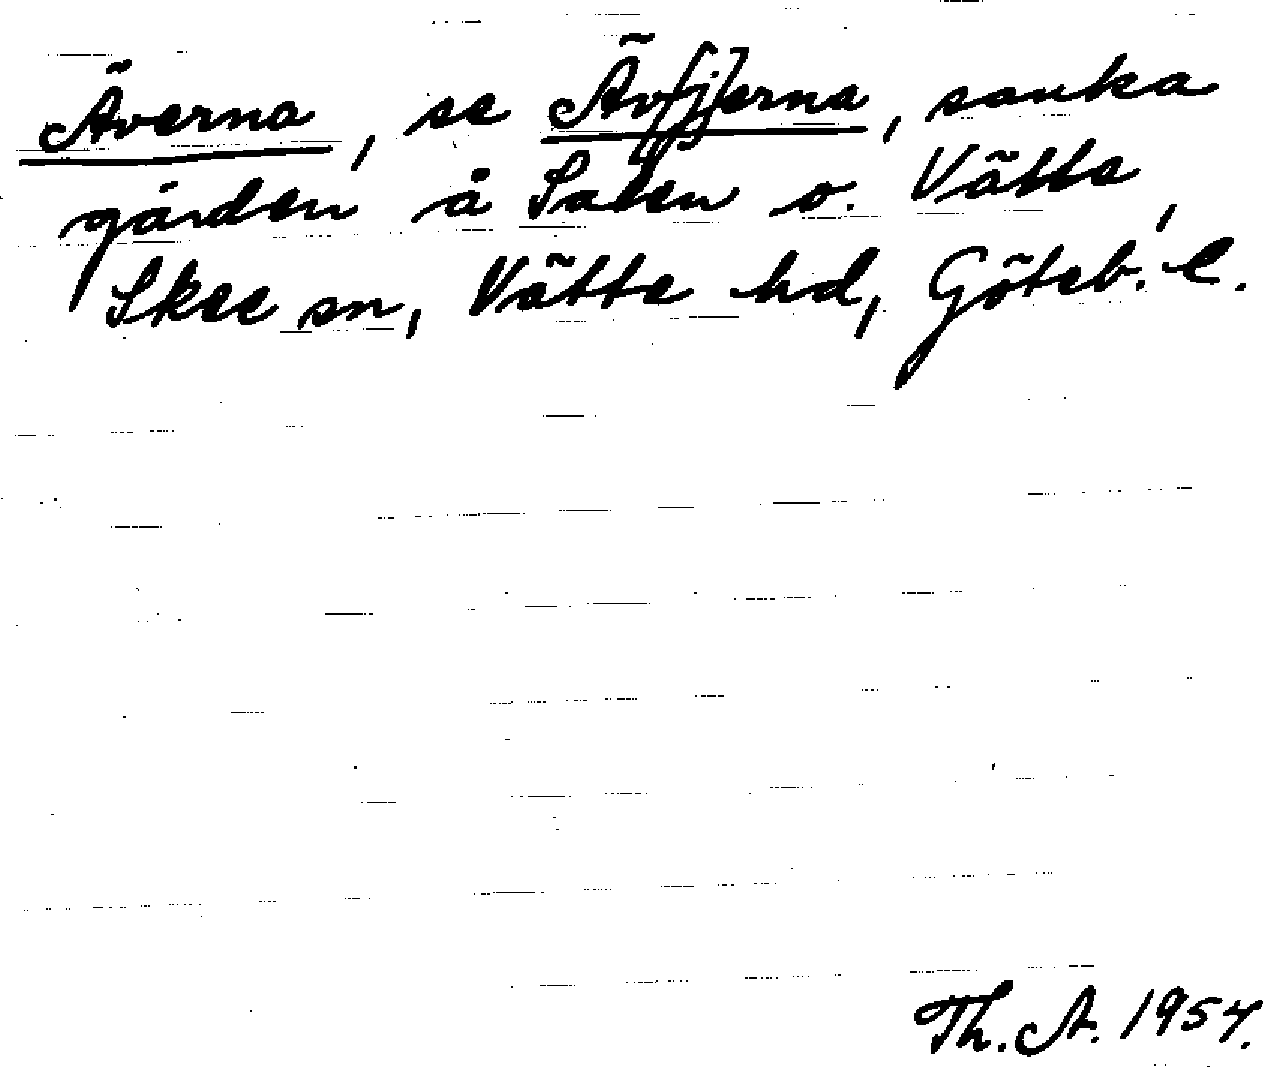 Äverna, se Äv[fj]erna, sanka
gärden å Saten o. Vätte,
Skee sn, Vätte hd, Göteb. l.
Th. A. 1954.